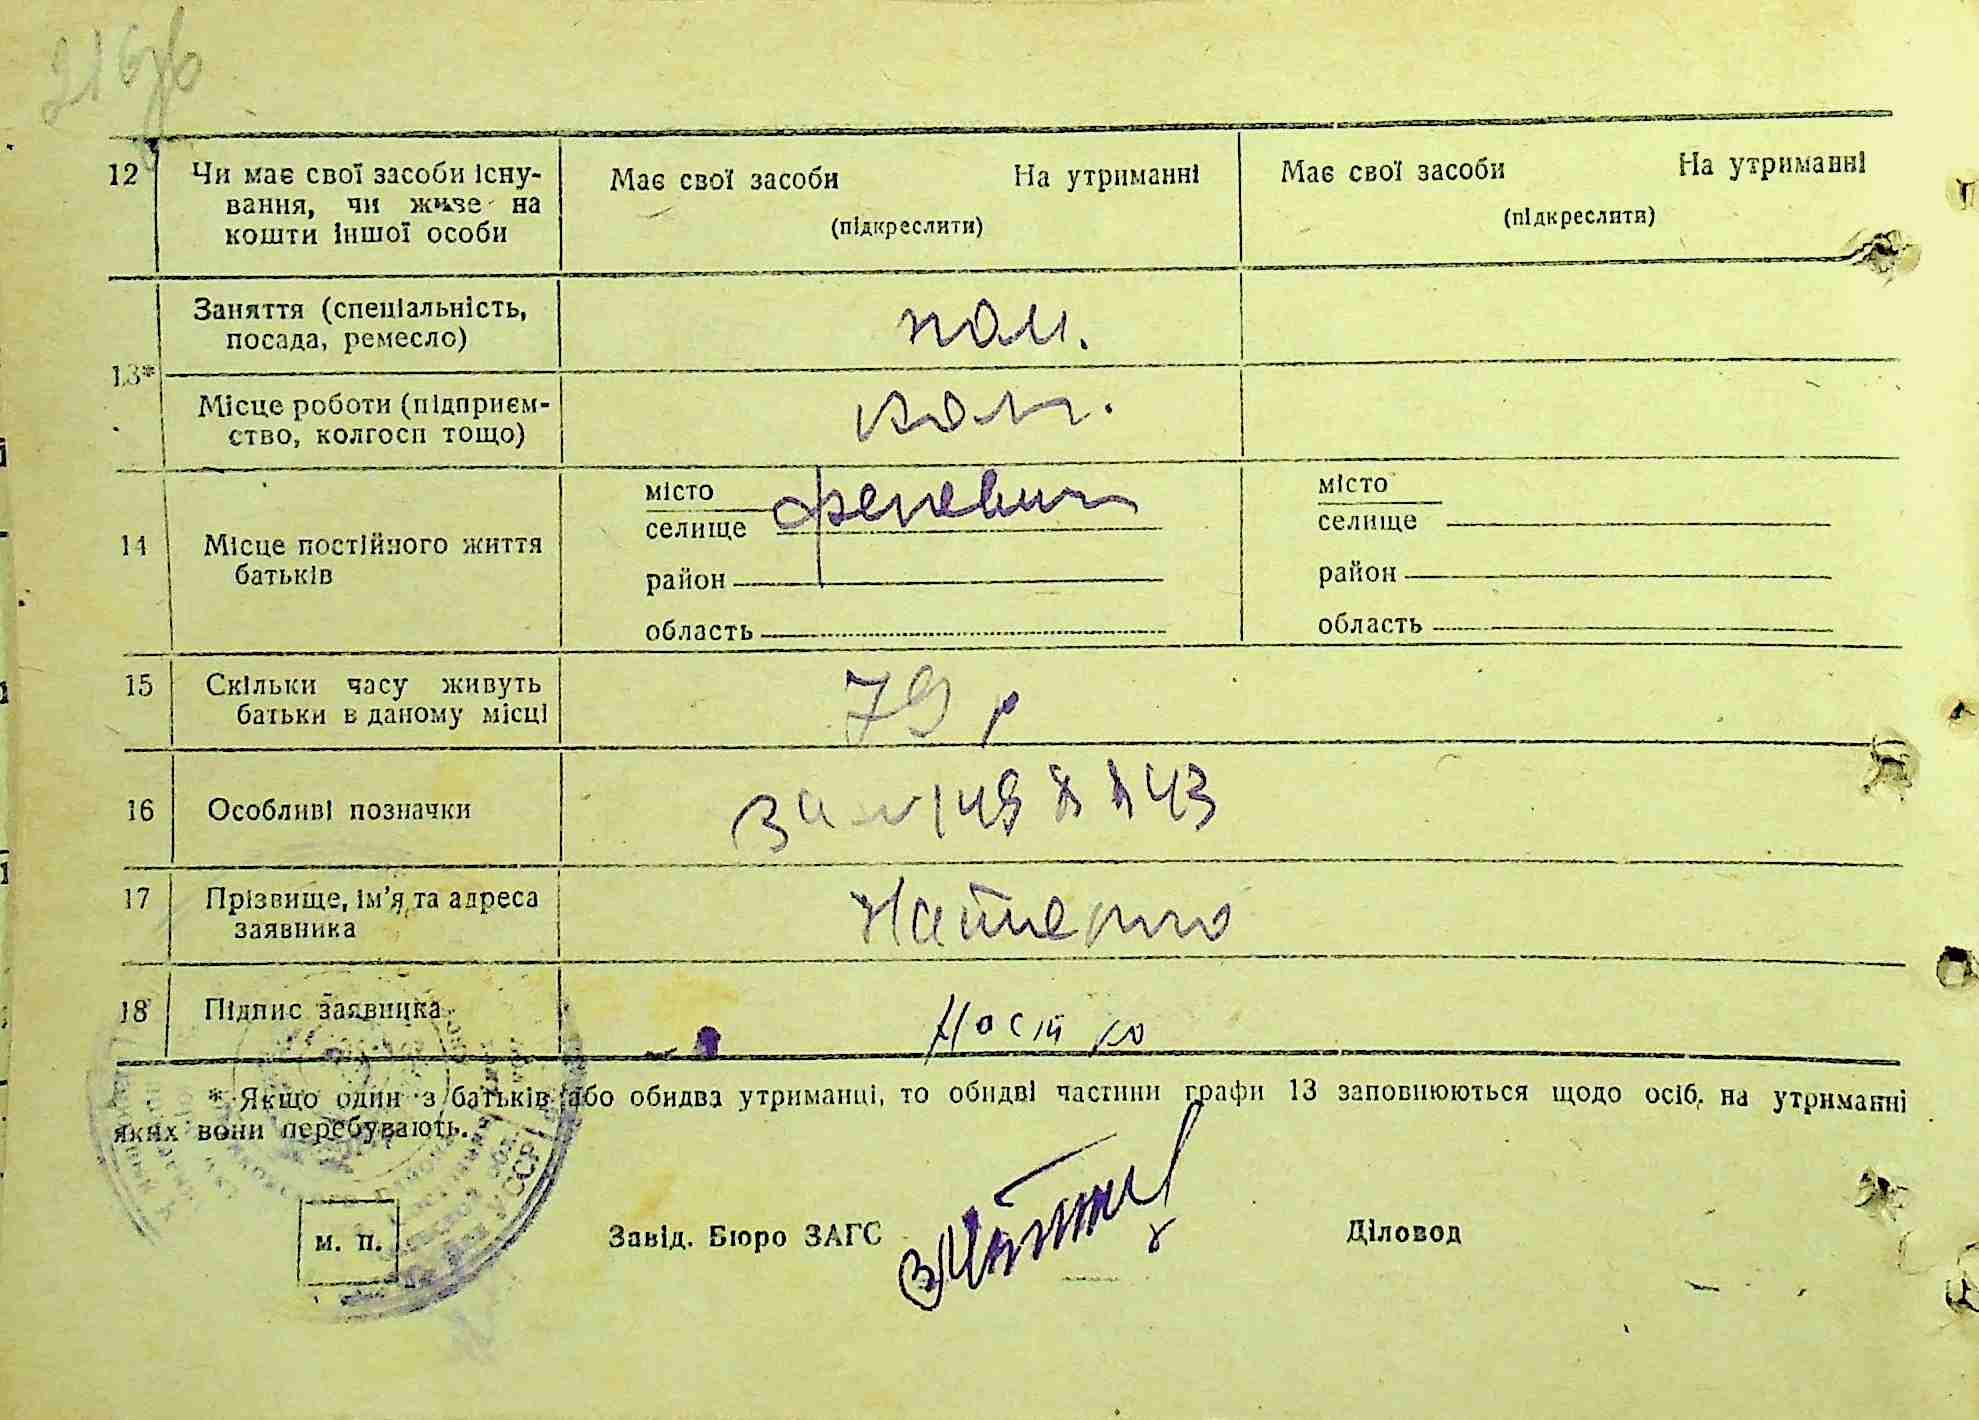 216
12 Чи має свої засоби існу-
вання, чи живе на
кошти іншої особи
Має свої засоби На утриманні
(підкреслити)
Має свої засоби На утриманні
(підкреслити)
13*
Заняття (спеціальність,
посада, ремесло)
кол.
Місце роботи (підприєм-
ство, колгосп тощо)
кол.
14 Місце постійного життя
батьків
місто
селище
район
область
місто
селище
район
область
15 Скільки часу живуть
батьки в даному місці
79 р
16 Особливі позначки
17 Прізвище, ім'я та адреса
заявника
18 Підпис заявника
* Якщо один з батьків або обидва утриманці, то обидві частини графи 13 заповнюються щодо осіб, на утриманні
яких вони перебувають.
м. п.
Завід. Бюро ЗАГС
Діловод